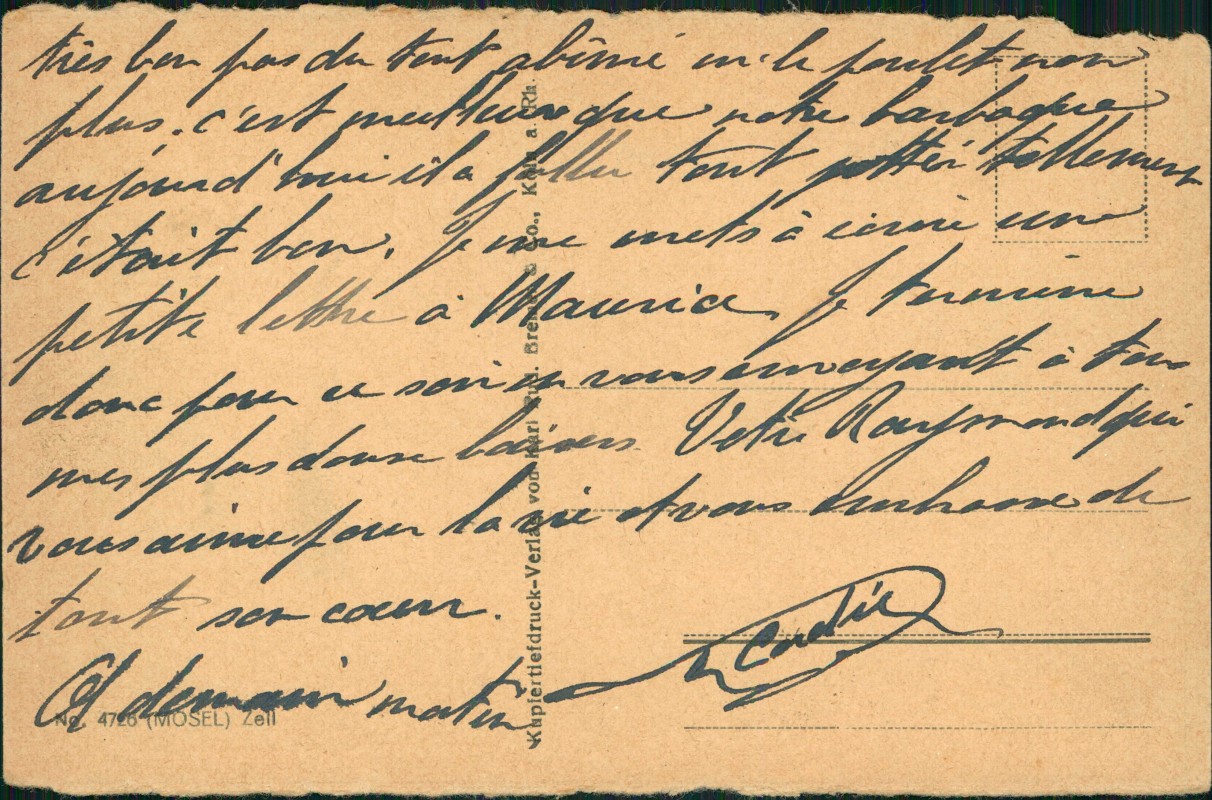 très bon pas du tout abîmé ni le poulet non
plus. c'est meilleur que notre barbaque
aujourd'hui il a fallu tout tellement
c'était bon. Je me mets à écrire une
petite lettre à Maurice, je termine
donc pour ce soir en vous envoyant à tous
mes plus doux baisers. Votre Raymond qui
vous aime pour la vie et vous embrasse de
tout son cœur.
A demain matin
Kupfertiefdruck-Verlag von Karl Rud. Bremer & Co., Köln a. Rh.
No. 4726 (MOSEL) Zell